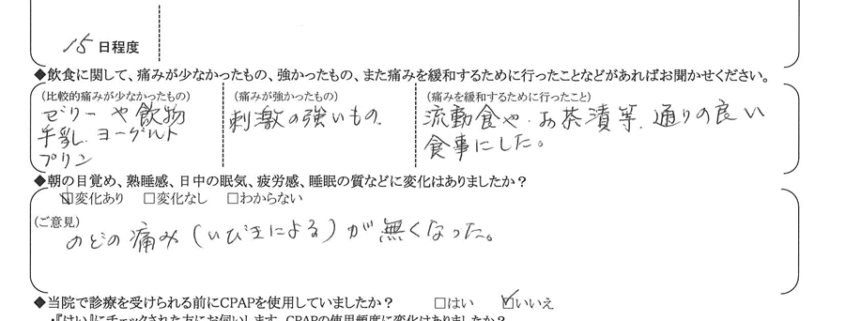 15日程度
◆飲食に関して、痛みが少なかったもの、強かったもの、また痛みを緩和するために行ったことなどがあればお聞かせください。
(比較的痛みが少なかったもの)
ゼリーや飲物
牛乳.ヨーグルト
プリン
(痛みが強かったもの)
刺激の強いもの
(痛みを緩和するために行ったこと)
流動食や.お茶漬等.通りの良い
食事にした。
◆朝の目覚め、熟睡感、日中の眠気、疲労感、睡眠の質などに変化はありましたか？
☑変化あり □変化なし □わからない
(ご意見)
のどの痛み(いびきによる)が無くなった。
◆当院で診療を受けられる前にCPAPを使用していましたか？ □はい ☑いいえ
・『はい』にチェックされた方にお伺いします。CPAPの使用頻度に変化はありましたか？